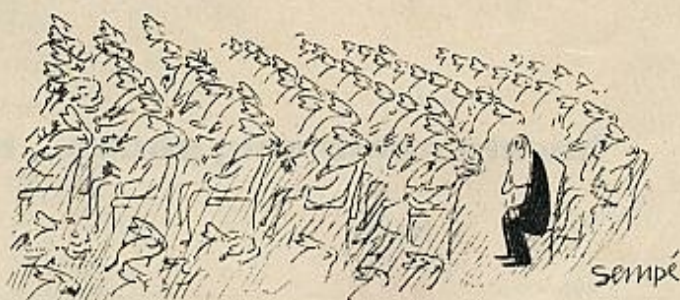 Sempé